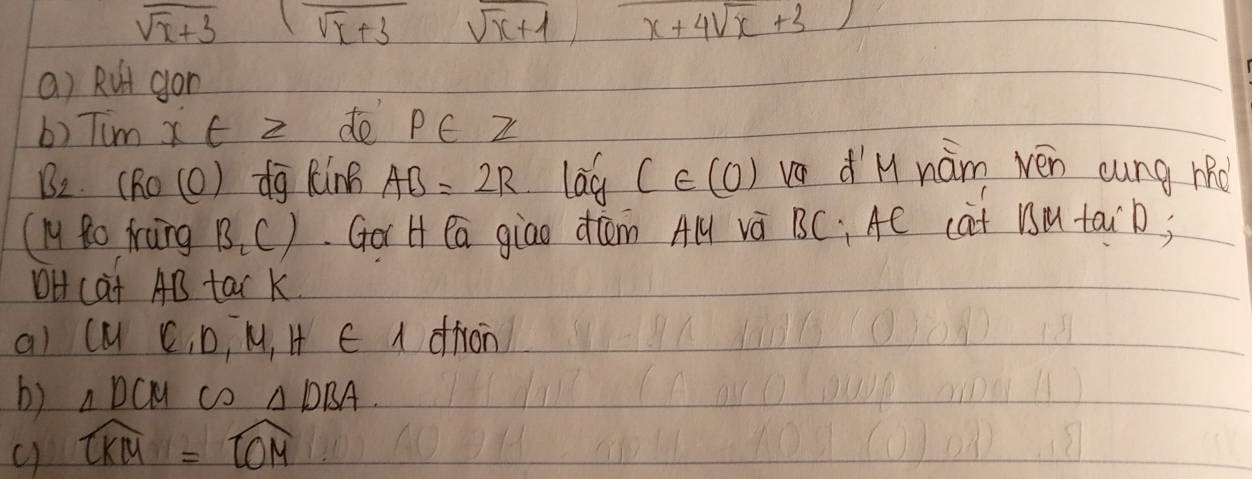 √x+3 ( √x+3 √x+1 ) x+4√x+3 )
a) Rút gọn
b) Tìm x ∈ Z để P ∈ Z
B2. Cho (O) đg kính AB = 2R. lấy C ∈ (O) và đ' M nằm trên cung nhỏ
(M ko trùng B, C). Gọi H là giao điểm AM và BC; AC cắt BM tại D;
DH cắt AB tại K.
a) CM C, D, M, H ∈ 1 đtròn
b) △DCM ∽ △DBA.
c) \widehat{CKM} = \widehat{COM}